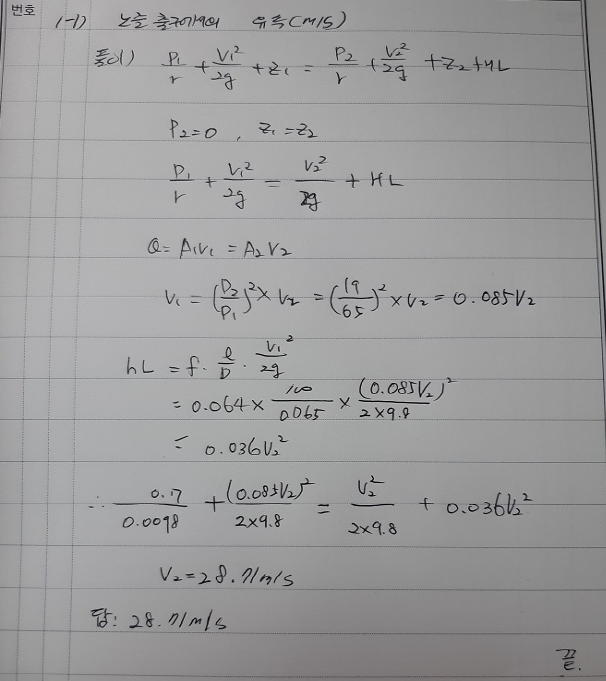 번호
1-1) 노즐 출구에서의 유속(m/s)
풀이) P₁/r + V₁²/2g + Z₁ = P₂/r + V₂²/2g + Z₂ + HL
P₂=0 , Z₁ = Z₂
P₁/r + V₁²/2g = V₂²/2g + HL
Q= A₁V₁ = A₂V₂
V₁ = (D₂/D₁)² × V₂ = (19/65)² × V₂ = 0.085V₂
hL = f · ℓ/D · V₁²/2g
= 0.064 × 100/0.065 × (0.085V₂)²/2×9.8
= 0.036V₂²
∴ 0.7/0.0098 + (0.085V₂)²/2×9.8 = V₂²/2×9.8 + 0.036V₂²
V₂=28.71m/s
답: 28.71m/s
끝.